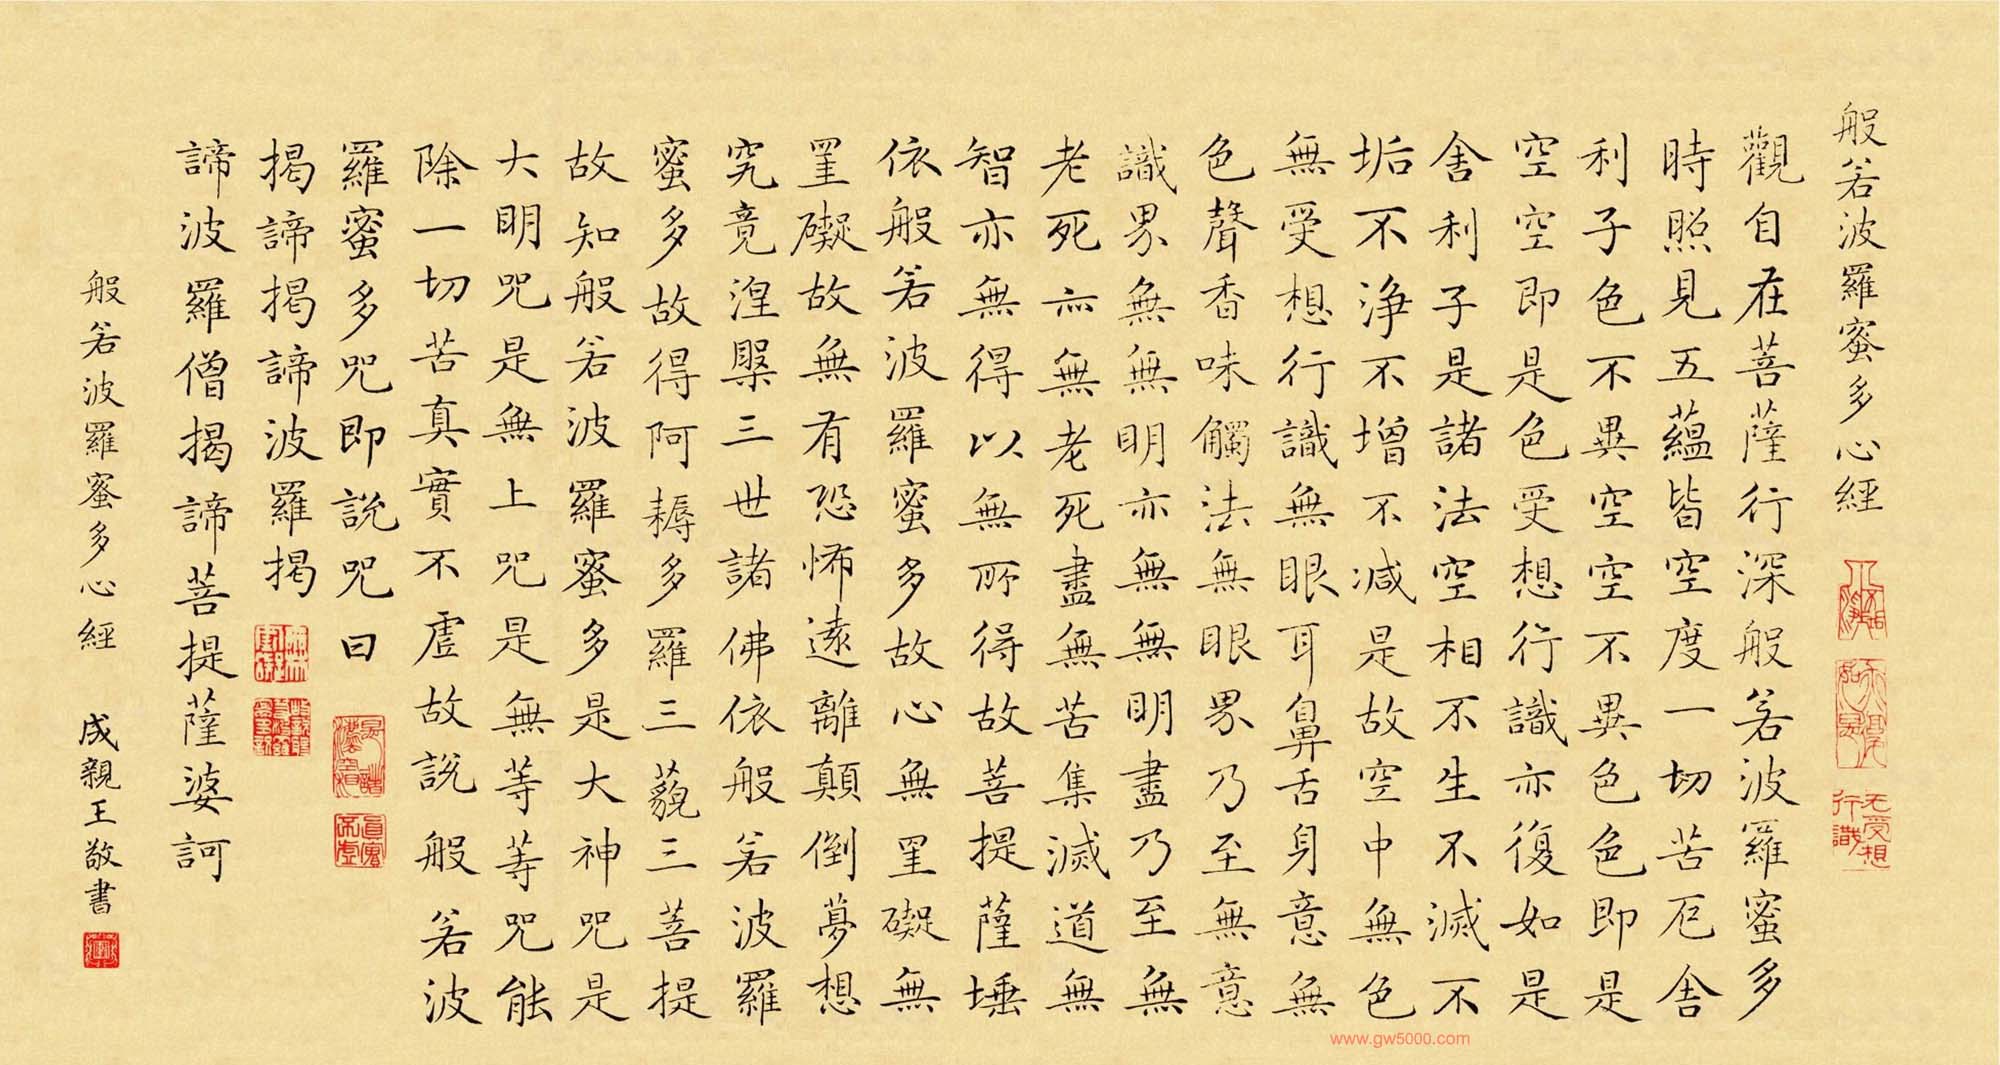 般若波羅蜜多心經
无受想行識
觀自在菩薩行深般若波羅蜜多
時照見五蘊皆空度一切苦厄舍
利子色不異空空不異色色即是
空空即是色受想行識亦復如是
舍利子是諸法空相不生不滅不
垢不淨不增不減是故空中無色
無受想行識無眼耳鼻舌身意無
色聲香味觸法無眼界乃至無意
識界無無明亦無無明盡乃至無
老死亦無老死盡無苦集滅道無
智亦無得以無所得故菩提薩埵
依般若波羅蜜多故心無罣礙無
罣礙故無有恐怖遠離顛倒夢想
究竟涅槃三世諸佛依般若波羅
蜜多故得阿耨多羅三藐三菩提
故知般若波羅蜜多是大神咒是
大明咒是無上咒是無等等咒能
除一切苦真實不虛故說般若波
羅蜜多咒即說咒曰
是諸法空相
真實不虛
揭諦揭諦波羅揭
諦波羅僧揭諦菩提薩婆訶
般若波羅蜜多心經 成親王敬書
www.gw5000.com